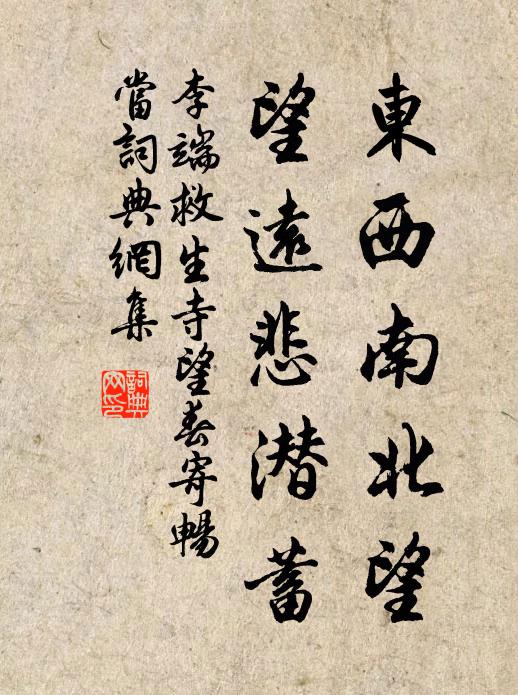 東西南北望
望遠悲潜蓄
李端救生寺望春寄暢
當詞典網集
詞典网印